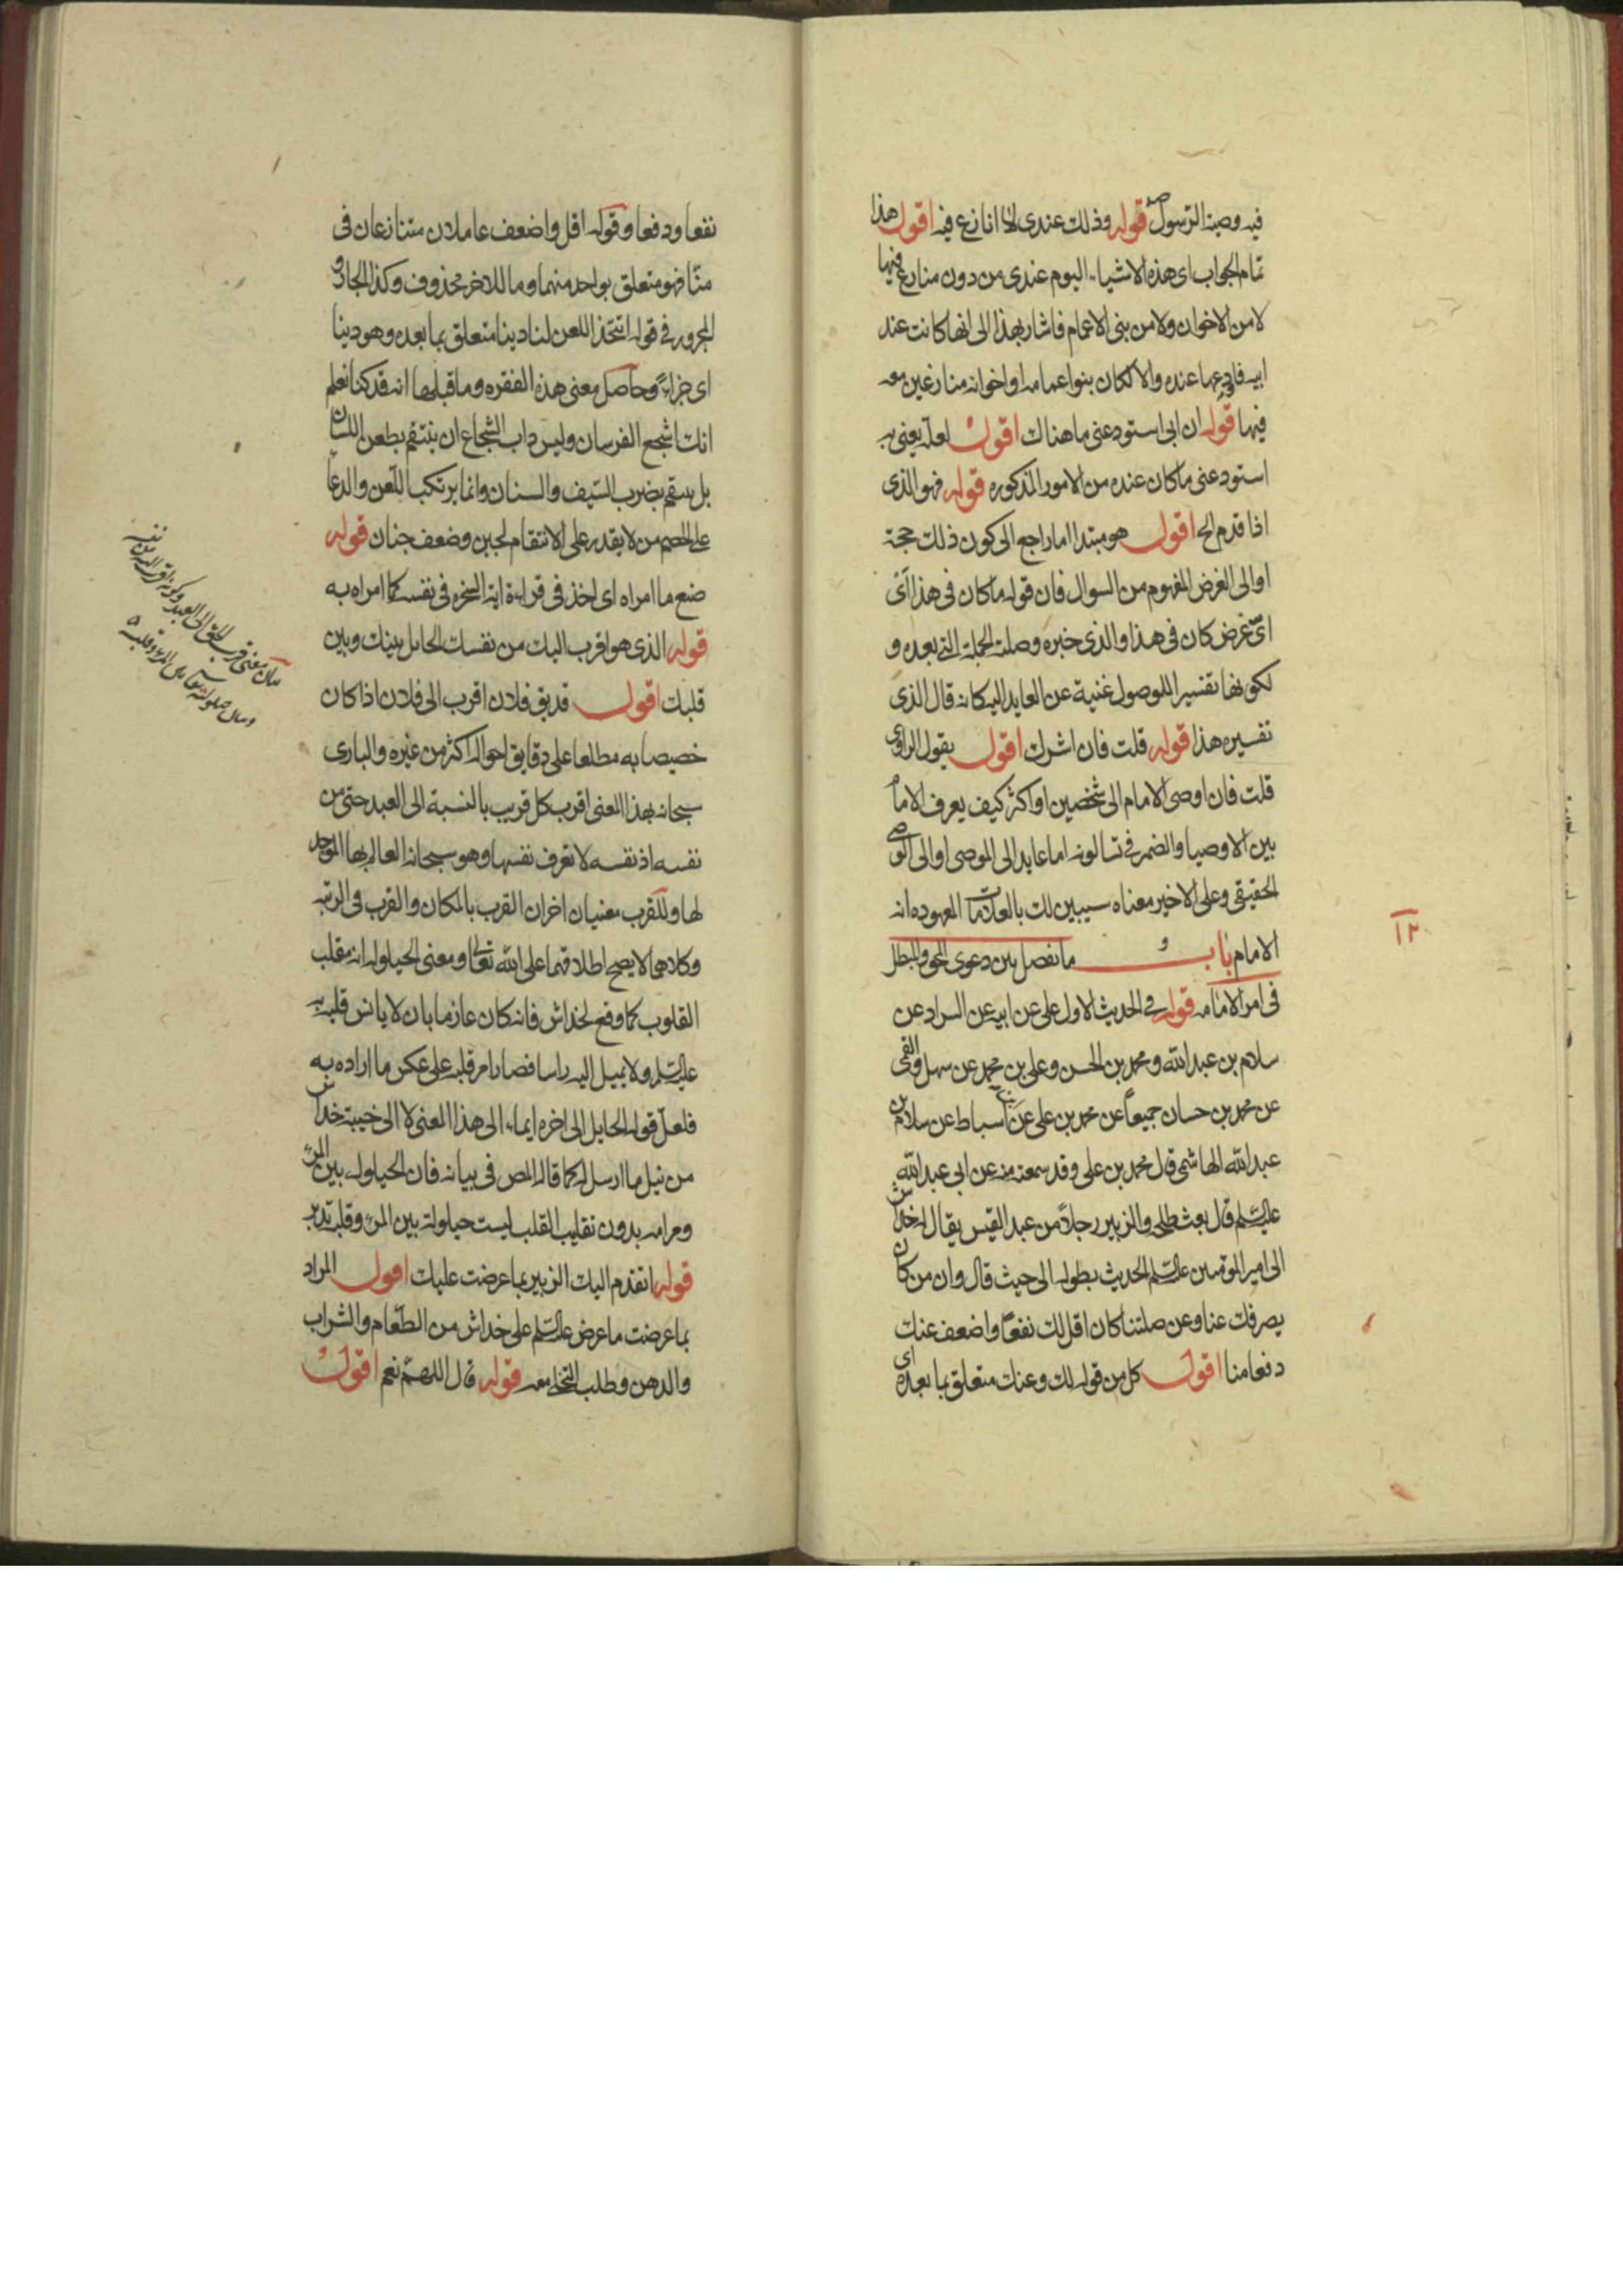 فيه وصية الرسول ص قوله وذلك عندى لا انازع فيه اقول هذا
تمام الجواب اى هذه الاشياء اليوم عندى من دون منازع فيها
لا من الاخوان ولا من بنى الاعمام فاشار بهذا الى انها كانت عند
ابيه فاودعها عنده والا لكان بنوا اعمامه او اخوانه منازعين معه
فيها قوله ان ابى استودعنى ما هناك اقول لعله يعنى به
استودعنى ما كان عنده من الامور المذكوره قوله فهو الذى
اذا قدم الخ اقول هو مبتدا اما راجع الى كون ذلك حجة
او الى الغرض المفهوم من السوال فان قوله ما كان فى هذا اى
اىّ غرض كان فى هذا والذى خبره وصلته الجملة التى بعده و
لكونها تفسيرا للموصول غنية عن العايد اليه كانه قال الذى
تفسيره هذا قوله قلت فان اشرك اقول يقول الراوى
قلت فان اوصى الامام الى شخصين او اكثر كيف يعرف الامام
بين الاوصيا والضمير فى تسالونه اما عايد الى الموصى او الى الوصى
الحقيقى وعلى الاخير معناه سيبين لك بالعلامات المعهوده انه
الامام باب ما يفصل بين دعوى المحق والمبطل
١٢
فى امر الامامه قوله فى الحديث الاول على عن ابيه عن السراد عن
سلام بن عبد الله ومحمد بن الحسن وعلى بن محمد عن سهل والقمى
عن محمد بن حسان جميعاً عن محمد بن على عن اسباط عن سلام بن
عبد الله الهاشمى قال محمد بن على وقد سمعته منه عن ابى عبد الله
عليه السلم قال بعث طلحه والزبير رجلاً من عبد القيس يقال له خداش
الى امير المومنين عليه السلم الحديث بطوله الى حيث قال وان من كان
يصرفك عنا وعن صلتنا كان اقل لك نفعاً واضعف عنك
دفعا منا اقول كل من قوله لك وعنك متعلق بما بعده اى
نفعا ودفعا وقوله اقل واضعف عاملان متنازعان فى
منّا فهو متعلق بواحد منهما وما للاخر محذوف وكذا الجار و
المجرور فى قوله اتتخذ اللعن لنا دينا متعلق بما بعده وهو دينا
اى جزاءً وحاصل معنى هذه الفقره وما قبلها انه قد كنا نعلم
انك اشجع الفرسان وليس داب الشجاع ان ينتقم بطعن اللسان
بل ينتقم بضرب السّيف والسنان وانما يرتكب اللّعن والدعا
على الخصم من لا يقدر على الانتقام لجبن وضعف جنان قوله
ضع ما امراه اى اخذ فى قراءة اية السخره فى نفسه كما امراه به
قوله الذى هو اقرب اليك من نفسك الحايل بينك وبين
قلبك اقول قد يق فلان اقرب الى فلان اذا كان
خصيصا به مطلعا على دقايق احواله اكثر من غيره والبارى
سبحانه بهذا المعنى اقرب كل قريب بالنسبة الى العبد حتى من
نفسه اذ نفسه لا تعرف نفسها وهو سبحانه العالم بها الموجد
لها وللقرب معنيان اخران القرب بالمكان والقرب فى الرتبه
وكلاهما لا يصح اطلاقهما على الله تعالى ومعنى الحيلوله انه مقلب
القلوب كما وقع لخداش فانه كان عازما بان لا يانس قلبه به
عليه السلم ولا يميل اليه راسا فصار امر قلبه على عكس ما اراده به
فلعلّ قوله الحايل الى اخره ايماء الى هذا المعنى لا الى خيبة خداش
من نيل ما ارسل له كما قاله المص فى بيانه فان الحيلوله بين المرء
ومرامه بدون تقليب القلب ليست حيلولة بين المرء وقلبه تدبر
قوله اتقدم اليك الزبير بما عرضت عليك اقول المراد
بما عرضت ما عرض عليه السلم على خداش من الطّعام والشراب
والدهن وطلب التخلى معه قوله قال اللهمّ نعم اقول
بيان معنى قرب الحق الى العبد وكونه اقرب اليه من نفسه
وبيان حيلولته تعالى بين المرء وقلبه